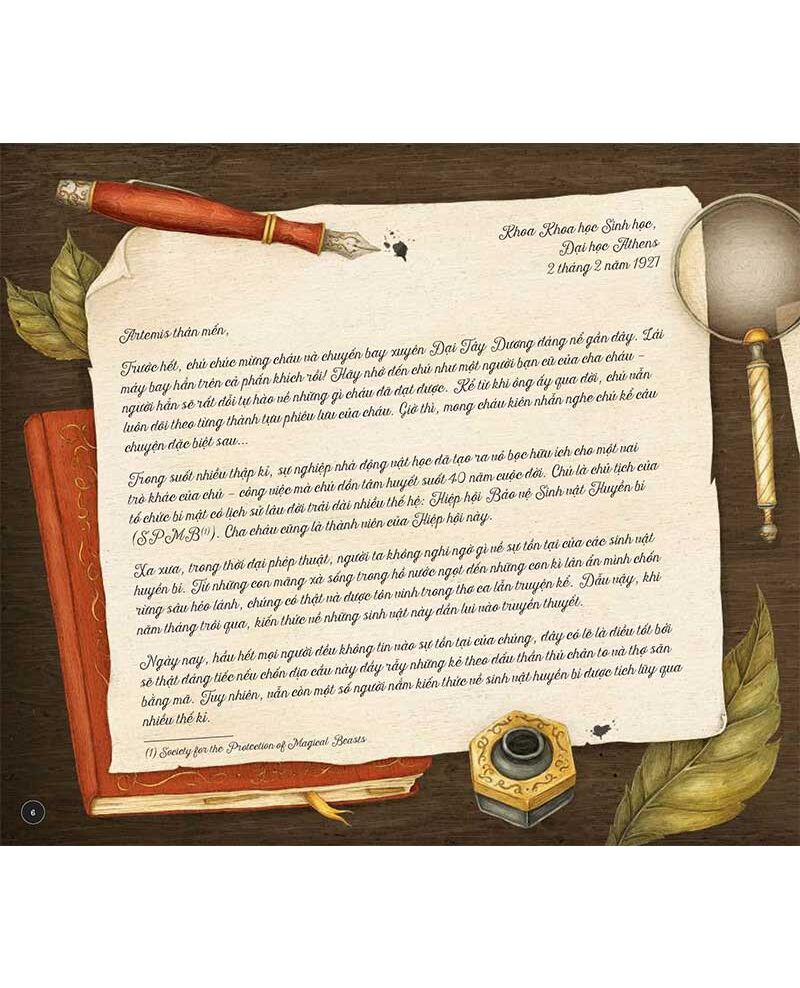 Khoa Khoa học Sinh học,
Đại học Athens
2 tháng 2 năm 1927
Artemis thân mến,
Trước hết, chú chúc mừng cháu và chuyến bay xuyên Đại Tây Dương đáng nể gần đây. Lái
máy bay hẳn trên cả phấn khích rồi! Hãy nhớ đến chú như một người bạn cũ của cha cháu –
người hẳn sẽ rất đỗi tự hào về những gì cháu đã đạt được. Kể từ khi ông ấy qua đời, chú vẫn
luôn dõi theo từng thành tựu phiêu lưu của cháu. Giờ thì, mong cháu kiên nhẫn nghe chú kể câu
chuyện đặc biệt sau...
Trong suốt nhiều thập kỉ, sự nghiệp nhà động vật học đã tạo ra vỏ bọc hữu ích cho một vai
trò khác của chú – công việc mà chú dồn tâm huyết suốt 40 năm cuộc đời. Chú là chủ tịch của
tổ chức bí mật có lịch sử lâu đời trải dài nhiều thế hệ: Hiệp hội Bảo vệ Sinh vật Huyền bí
(SPMB(1)). Cha cháu cũng là thành viên của Hiệp hội này.
Xa xưa, trong thời đại phép thuật, người ta không nghi ngờ gì về sự tồn tại của các sinh vật
huyền bí. Từ những con mãng xà sống trong hồ nước ngọt đến những con kì lân ẩn mình chốn
rừng sâu hẻo lánh, chúng có thật và được tôn vinh trong thơ ca lẫn truyện kể. Dẫu vậy, khi
năm tháng trôi qua, kiến thức về những sinh vật này dần lui vào truyền thuyết.
Ngày nay, hầu hết mọi người đều không tin vào sự tồn tại của chúng, đây có lẽ là điều tốt bởi
sẽ thật đáng tiếc nếu chốn địa cầu này đầy rẫy những kẻ theo dấu thần thú chân to và thợ săn
bằng mã. Tuy nhiên, vẫn còn một số người nắm kiến thức về sinh vật huyền bí được tích lũy qua
nhiều thế kỉ.
(1) Society for the Protection of Magical Beasts
6